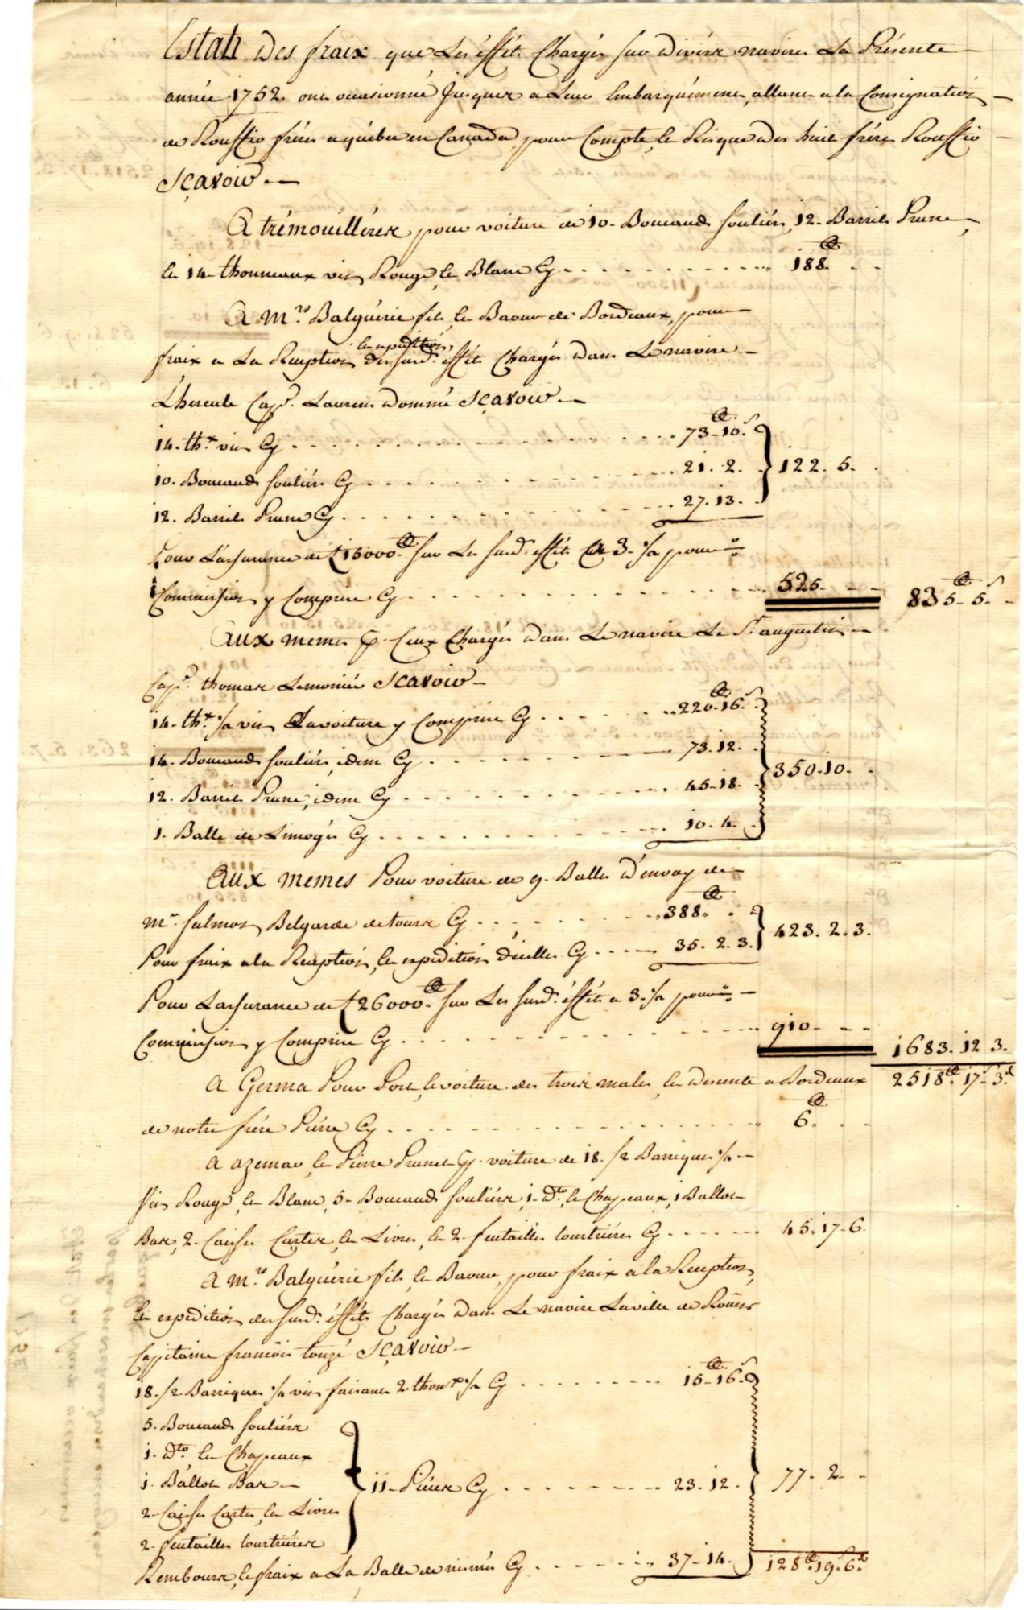 Estah Des fraix que Les éffét Chargés sur divérse navires La Présente
année 1752. ont occasionné Jusques a Leur Embarquément, allant a la Consignation
de Rouffio fréres a québec en Canada, pour Compte, le Risque des huit frére Rouffio
Sçavoir
A trémouilliérer pour voiture de 10. Boucauds souliérs, 12. Barrils Prune,
le 14. thonneaux vin Rouge, le Blanc Cy 188
A Mrs Balguérie fils, le Baour de Bordeaux, pour
fraix a La Reception le expedition des susd. éffét Chargés dans Le navire
L'hercule Cape. Laurens dommé Sçavoir
14. thx. vin Cy 73. 10.
10. Boucauds souliérs Cy 21. 2. 122. 5.
12. Barrils Prune Cy 27. 13.
Pour L'assurance de 15000 sur Les susd. éffét a 3. % pour
Commission y Comprise Cy 525. 835. 5.
Aux memes p. Ceux Chargés dans Le navire Le St augustin
Cape. thomas Lemonier Scavoir
14. thx. /a vin La voiture y Comprise Cy 220. 16.
14. Boucauds souliérs, idem Cy 73. 12.
12. Barrils Prune, idem Cy 45. 18. 350. 10.
1. Balle de Limoges Cy 10. 4.
Aux memes Pour voiture de 9. Balles D'envoy de
Mr. Salmon, Belgarde de tours Cy 388.
Pour fraix a la Reception, le expedition d'icelles Cy 35. 2. 3. 423. 2. 3.
Pour L'assurance de 26000 sur Les susd. éffét a 3. % pour
Commission y Comprise Cy 910. 1683. 12. 3.
A Germa Pour Port, le voiture des trois males, le desente a Bordeaux 2518. 17. 3.
de notre frére Piérre Cy 6.
A azemar, le Piérre Prunet p. voiture de 18. /2 Barriques /a
vin Rouge, le Blanc, 5. Boucauds souliérs, 1. dt. le Chapeaux, 1. Ballot
Bas, 2. Caisses Cartes, le Livres, le 2. futailles tourtiéres Cy 45. 17. 6.
A Mrs Balguérie fils, le Baour, pour fraix a la Reception,
le expedition des susd. éffét Chargés dans Le navire La ville de Roüen
Cappitaine francois touzé Sçavoir
18. /2 Barriques /a vin faisant 2. thonx. /a Cy 15. 16.
5. Boucauds souliérs
1. dto. le Chapeaux
1. Ballot Bas 11. Piéces Cy 23. 12. 77. 2.
2. Caisses Cartes, le Livres
2. futailles tourtiéres
Rembourse, le fraix a La Balle de nimes Cy 37. 14. 128. 19. 6.